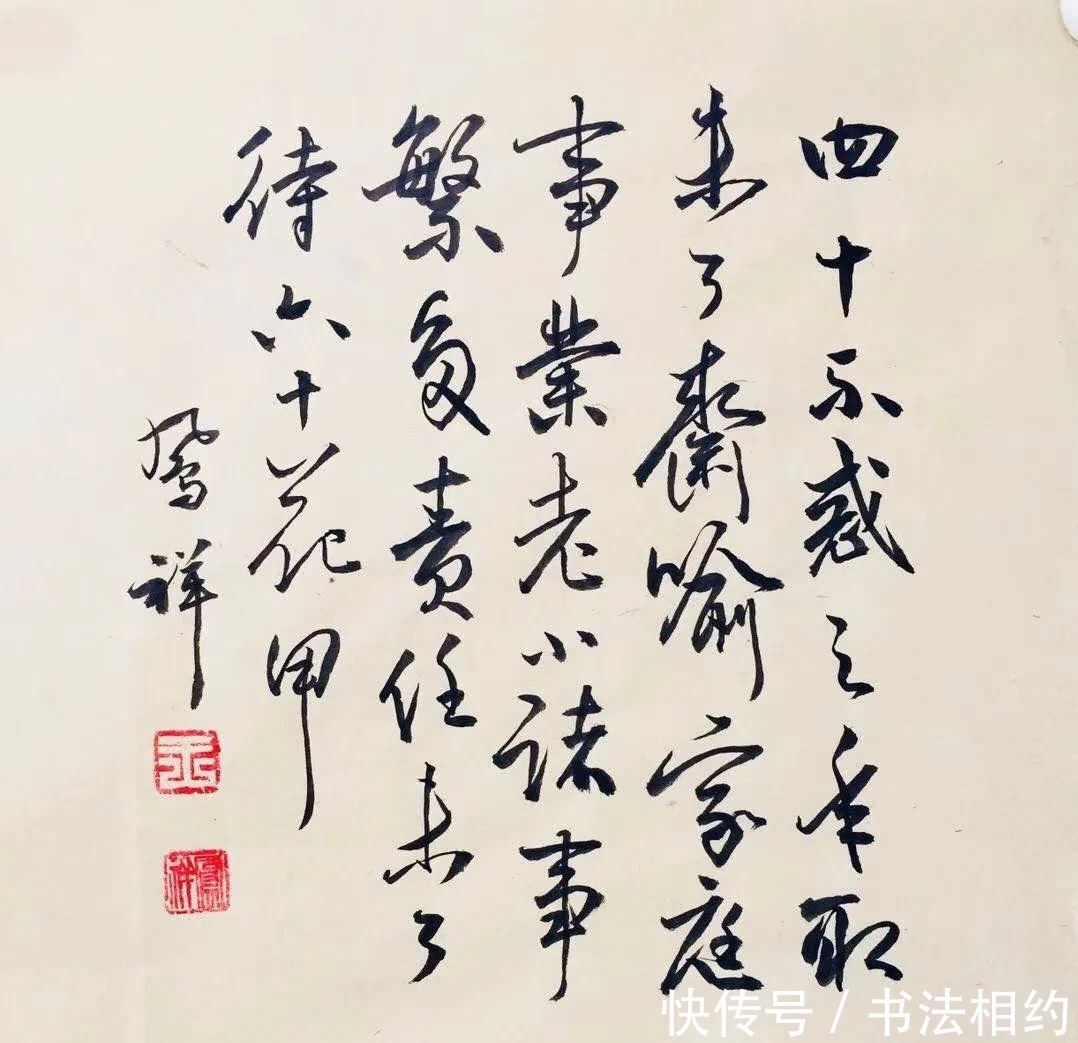 四十不惑之年取
未了齋喻家庭
事業老小諸事
繁多責任未了
待六十花甲
鳳祥
快传号 / 书法相约